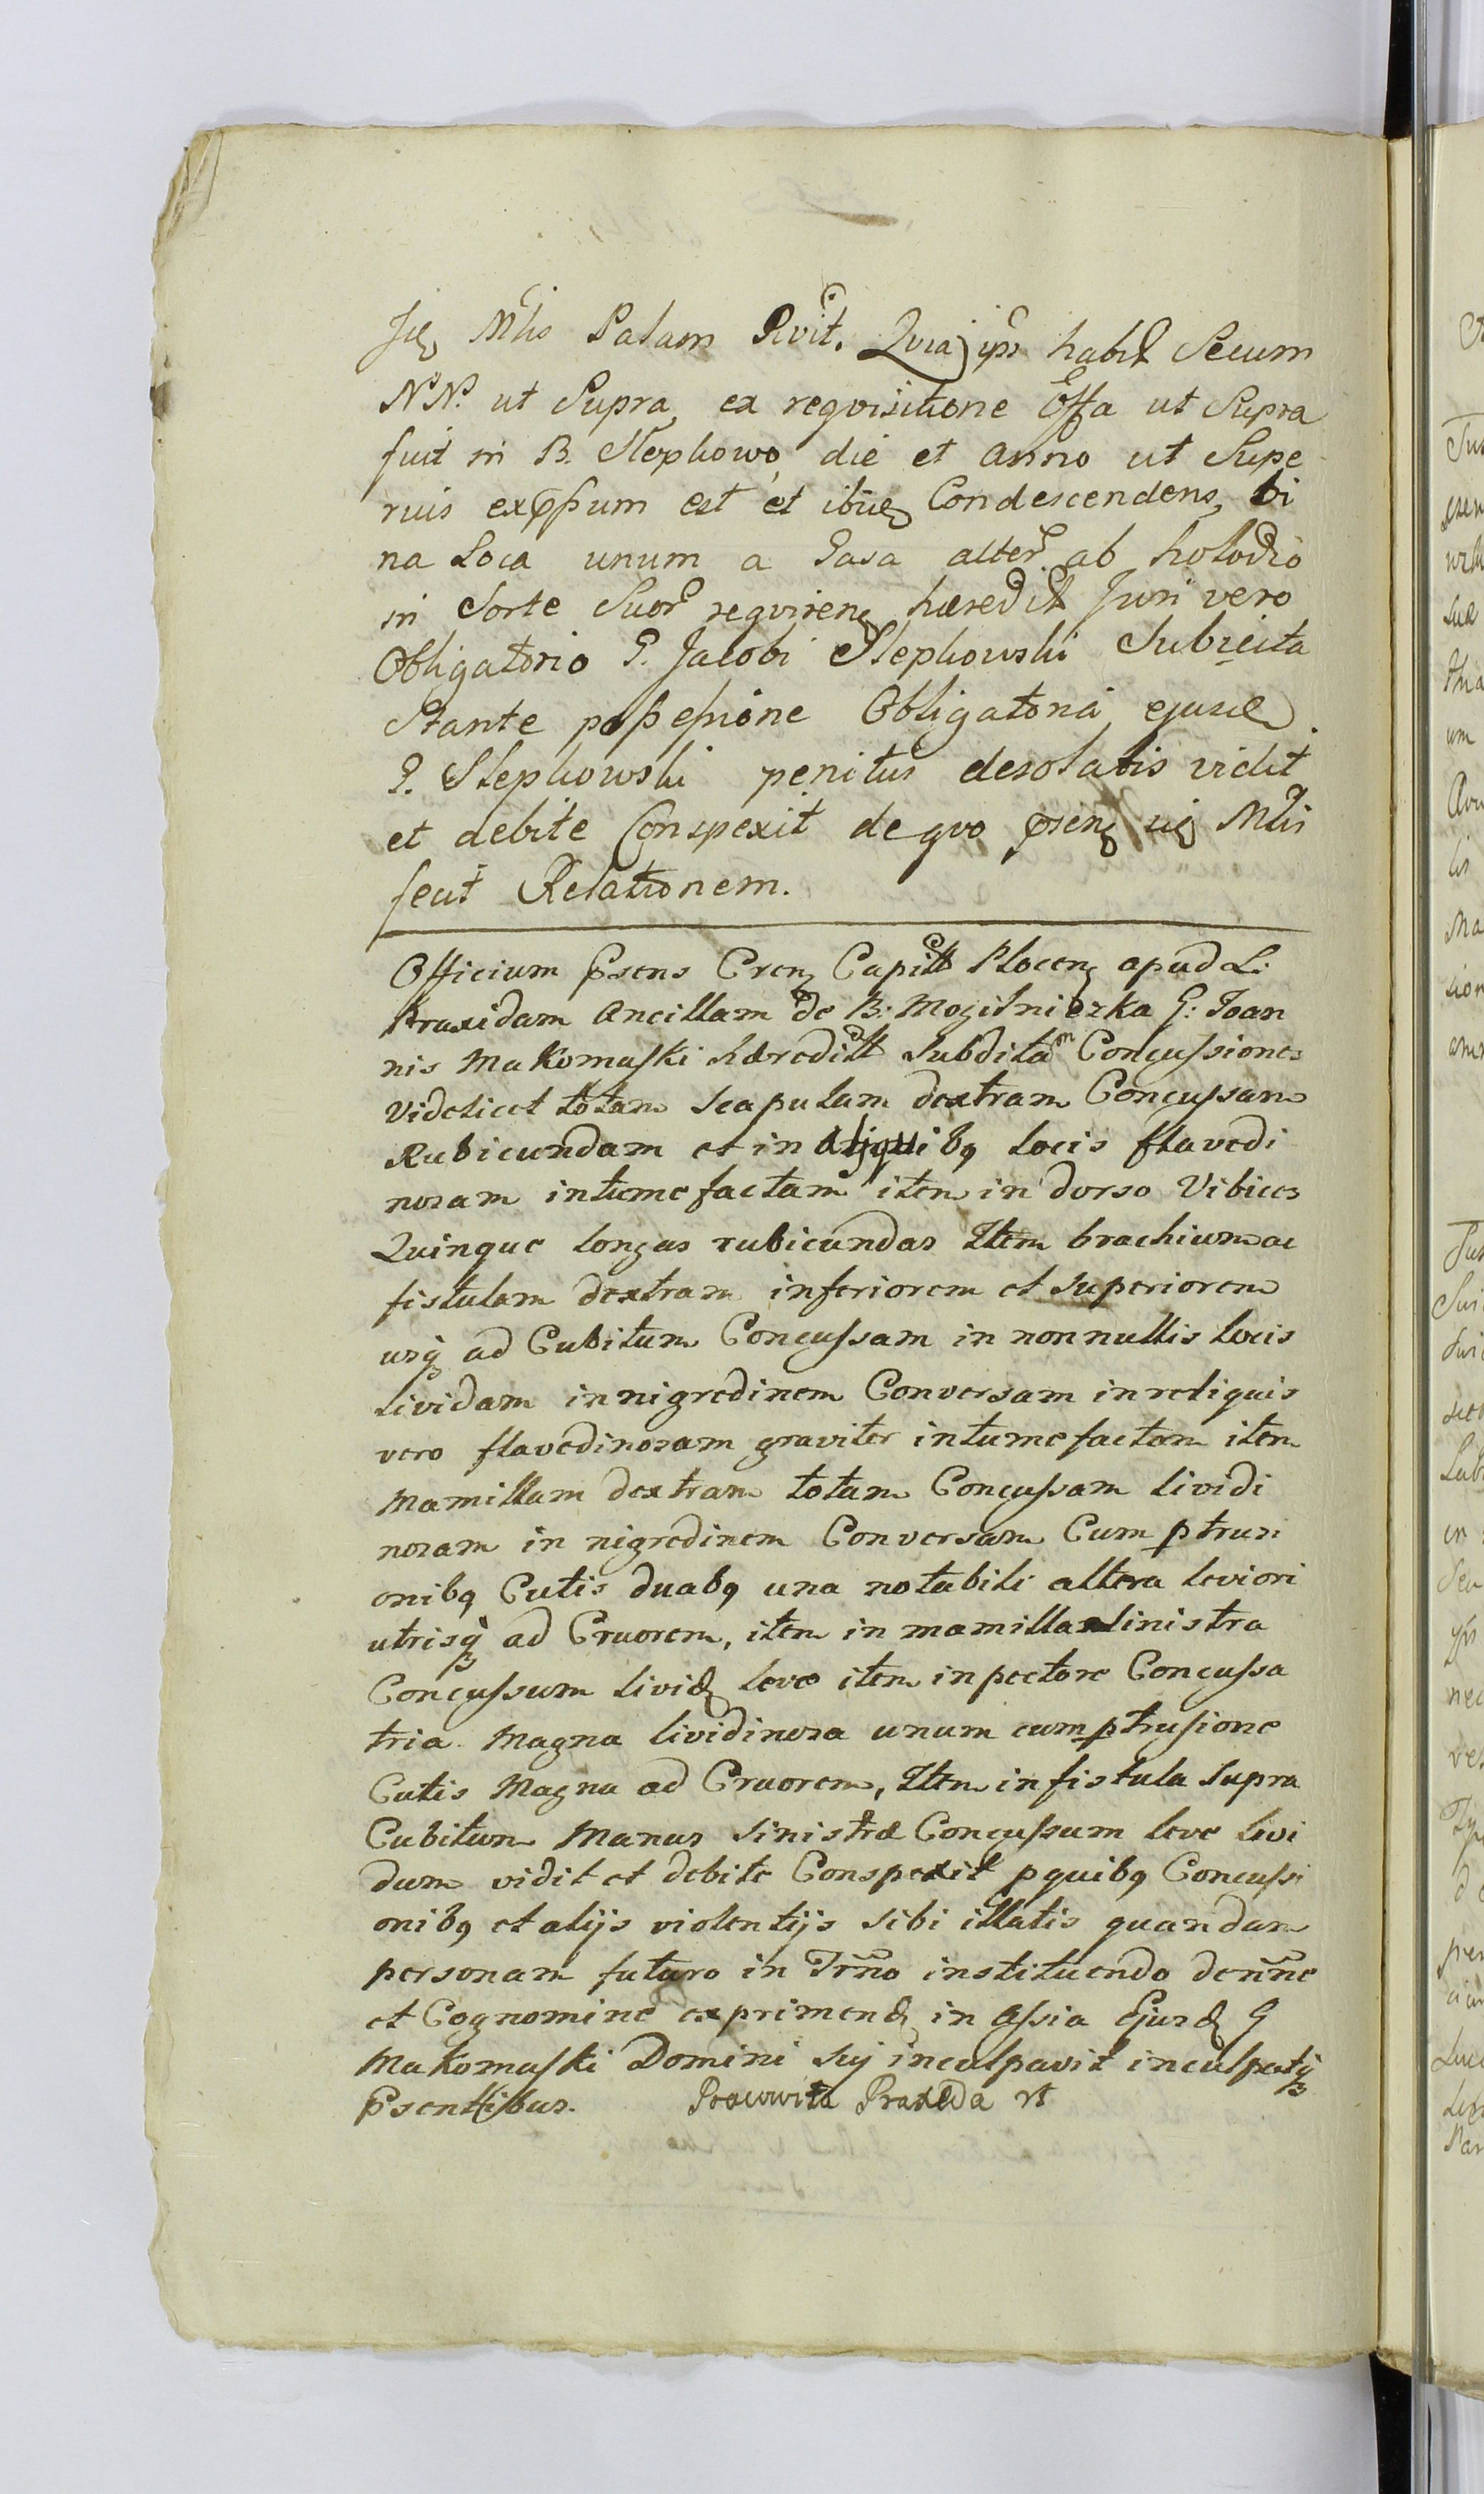 Mlis Palam Rvit. Qvia ips habt Secum
NN. ut Supra, ex reqvisitione Offa ut Supra
fuit in B. Slepkowo die et Anno ut Supe
rius expssum est et ibiq Condescendens, bi
na Loca unum a Gasa alter ab holodio
in Sorte Suor reqviren haeredit Juri vero
Obligatorio G. Jacobi Slepkowski Subjecta
Stante possessione Obligatoria ejusd
G. Slepkowski penitus desolatis vidit
et debite Conspexit de qvo psens sig Mlis
fecit Relationem.
Officium Psens Cren Capitt Plocen apud L:
Praxidam Ancillam de B: Mogilniczka G: Joan
nis Makomaski Hæreditt Subditam Concussiones
Videlicet totam Scapulam dextram Concussam
Rubicundam et in Aliquibq locis flavedi
nosam intumefactam item in dorso Vibices
Quinque longas rubicundas Item brachium ac
fistulam dextram inferiorem et superiorem
usq ad Cubitum Concussam in nonnullis locis
lividam in nigredinem Conversam in reliquis
vero flavedinosam graviter intumefactam item
Mamillam dextram totam Concussam lividi
nosam in nigredinem Conversam Cum ptrusi
onibq Cutis duabq una notabili altera leviori
utrisq ad Cruorem, item in mamilla sinistra
Concussum livid leve item in pectore Concussa
tria Magna lividinosa unum cum ptrusione
Cutis Magna ad Cruorem, Item in fistula supra
Cubitum Manus Sinistræ Concussum leve livi
dum vidit et debite Conspexit pquibq Concussi
onibq et alijs violentijs sibi illatis quandam
personam futuro in Trno instituendo de nne
et Cognomine exprimend in Assia Ejusd G
Makomaski Domini Sui inculpavit inculpatq
Psentibus. Pracowita Praxeda rt